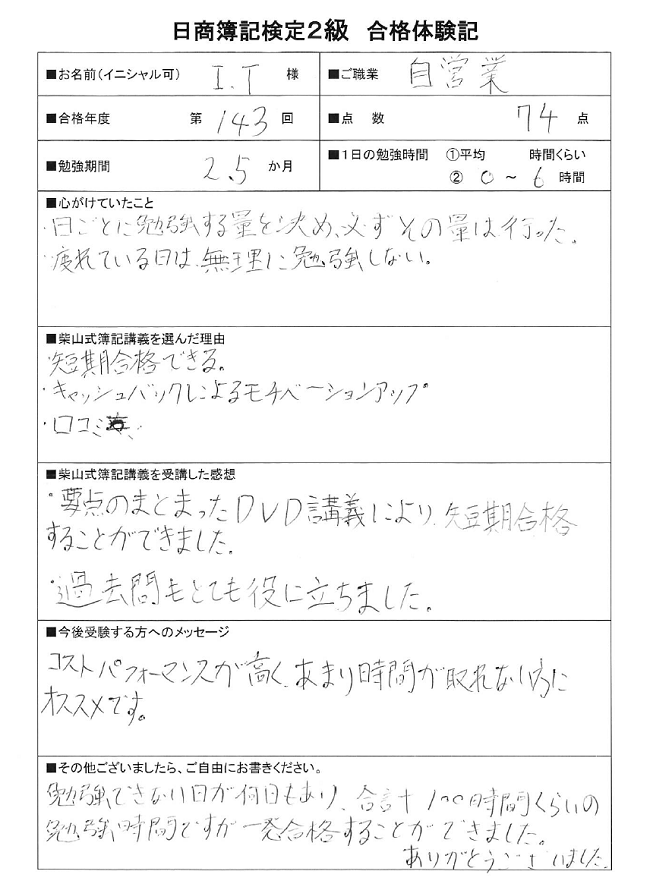 日商簿記検定2級　合格体験記
■お名前(イニシャル可)　I.T　様　■ご職業　自営業
■合格年度　第　143　回　■点　数　74　点
■勉強期間　2.5　か月　■1日の勉強時間　①平均　時間くらい
②　0　～　6　時間
■心がけていたこと
・日ごとに勉強する量を決め、必ずその量は行った。
・疲れている日は無理に勉強しない。
■柴山式簿記講義を選んだ理由
・短期合格できる。
・キャッシュバックによるモチベーションアップ
・口コミ
■柴山式簿記講義を受講した感想
・要点のまとまったDVD講義により、短期合格
することができました。
・過去問もとても役に立ちました。
■今後受験する方へのメッセージ
コストパフォーマンスが高く、あまり時間が取れない方に
オススメです。
■その他ございましたら、ご自由にお書きください。
勉強できない日が何日もあり、合計100時間くらいの
勉強時間ですが一発合格することができました。
ありがとうございました。